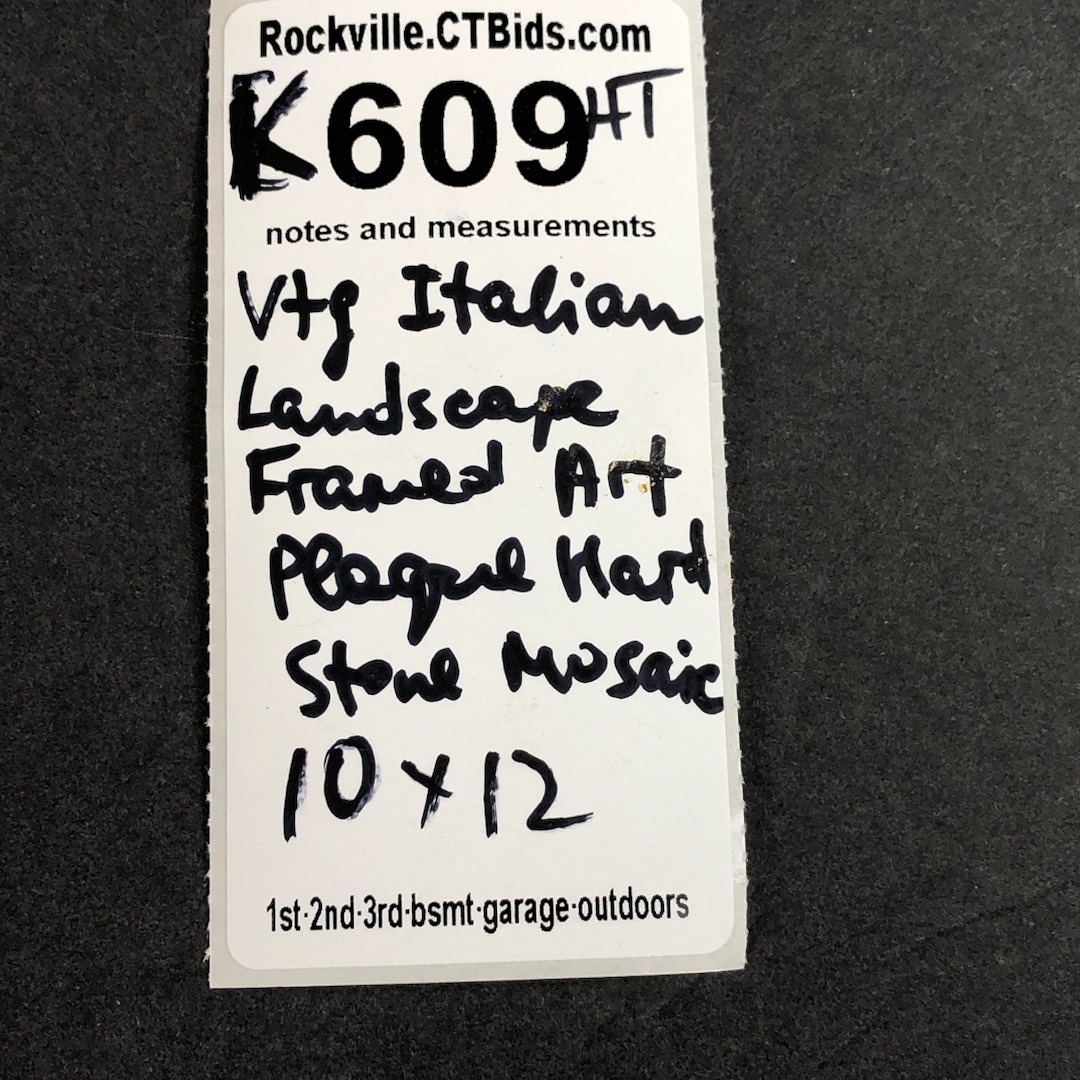 Rockville.CTBids.com
K609 HT
notes and measurements
Vtg Italian
Landscape
Framed Art
Plaque Hard
Stone Mosaic
10 x 12
1st·2nd·3rd·bsmt·garage·outdoors